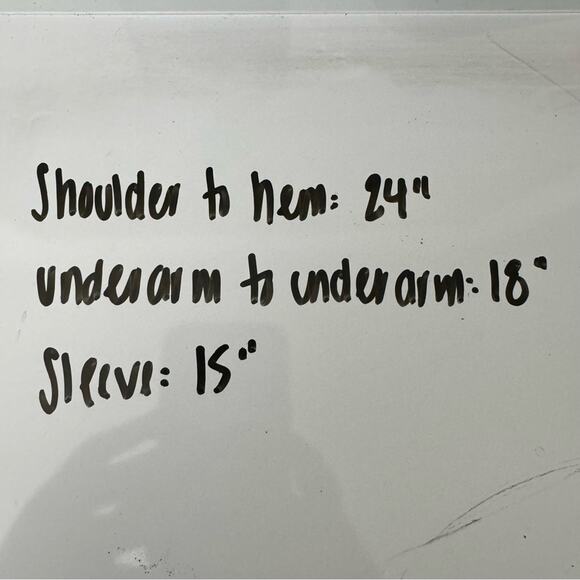 Shoulder to hem: 24"
underarm to underarm: 18"
Sleeve: 15"